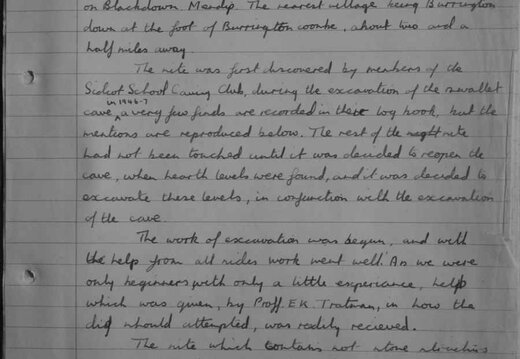 on Blackdown Mendip. The nearest village being Burrington
down at the foot of Burrington coombe, about two and a
half miles away.
The site was first discovered by members of the
Sidcot School Caving Club, during the excavation of the swallet
in 1946-7
cave, a very few finds are recorded in their log book, but the
mentions are reproduced below. The rest of the site
had not been touched until it was decided to reopen the
cave, when hearth levels were found, and it was decided to
excavate these levels, in conjunction with the excavation
of the cave.
The work of excavation was begun, and with
the help from all sides work went well. As we were
only beginners with only a little experience, help
which was given, by Proff. E.K. Tratman, in how the
dig should attempted, was readily recieved.
The site which contains not stone